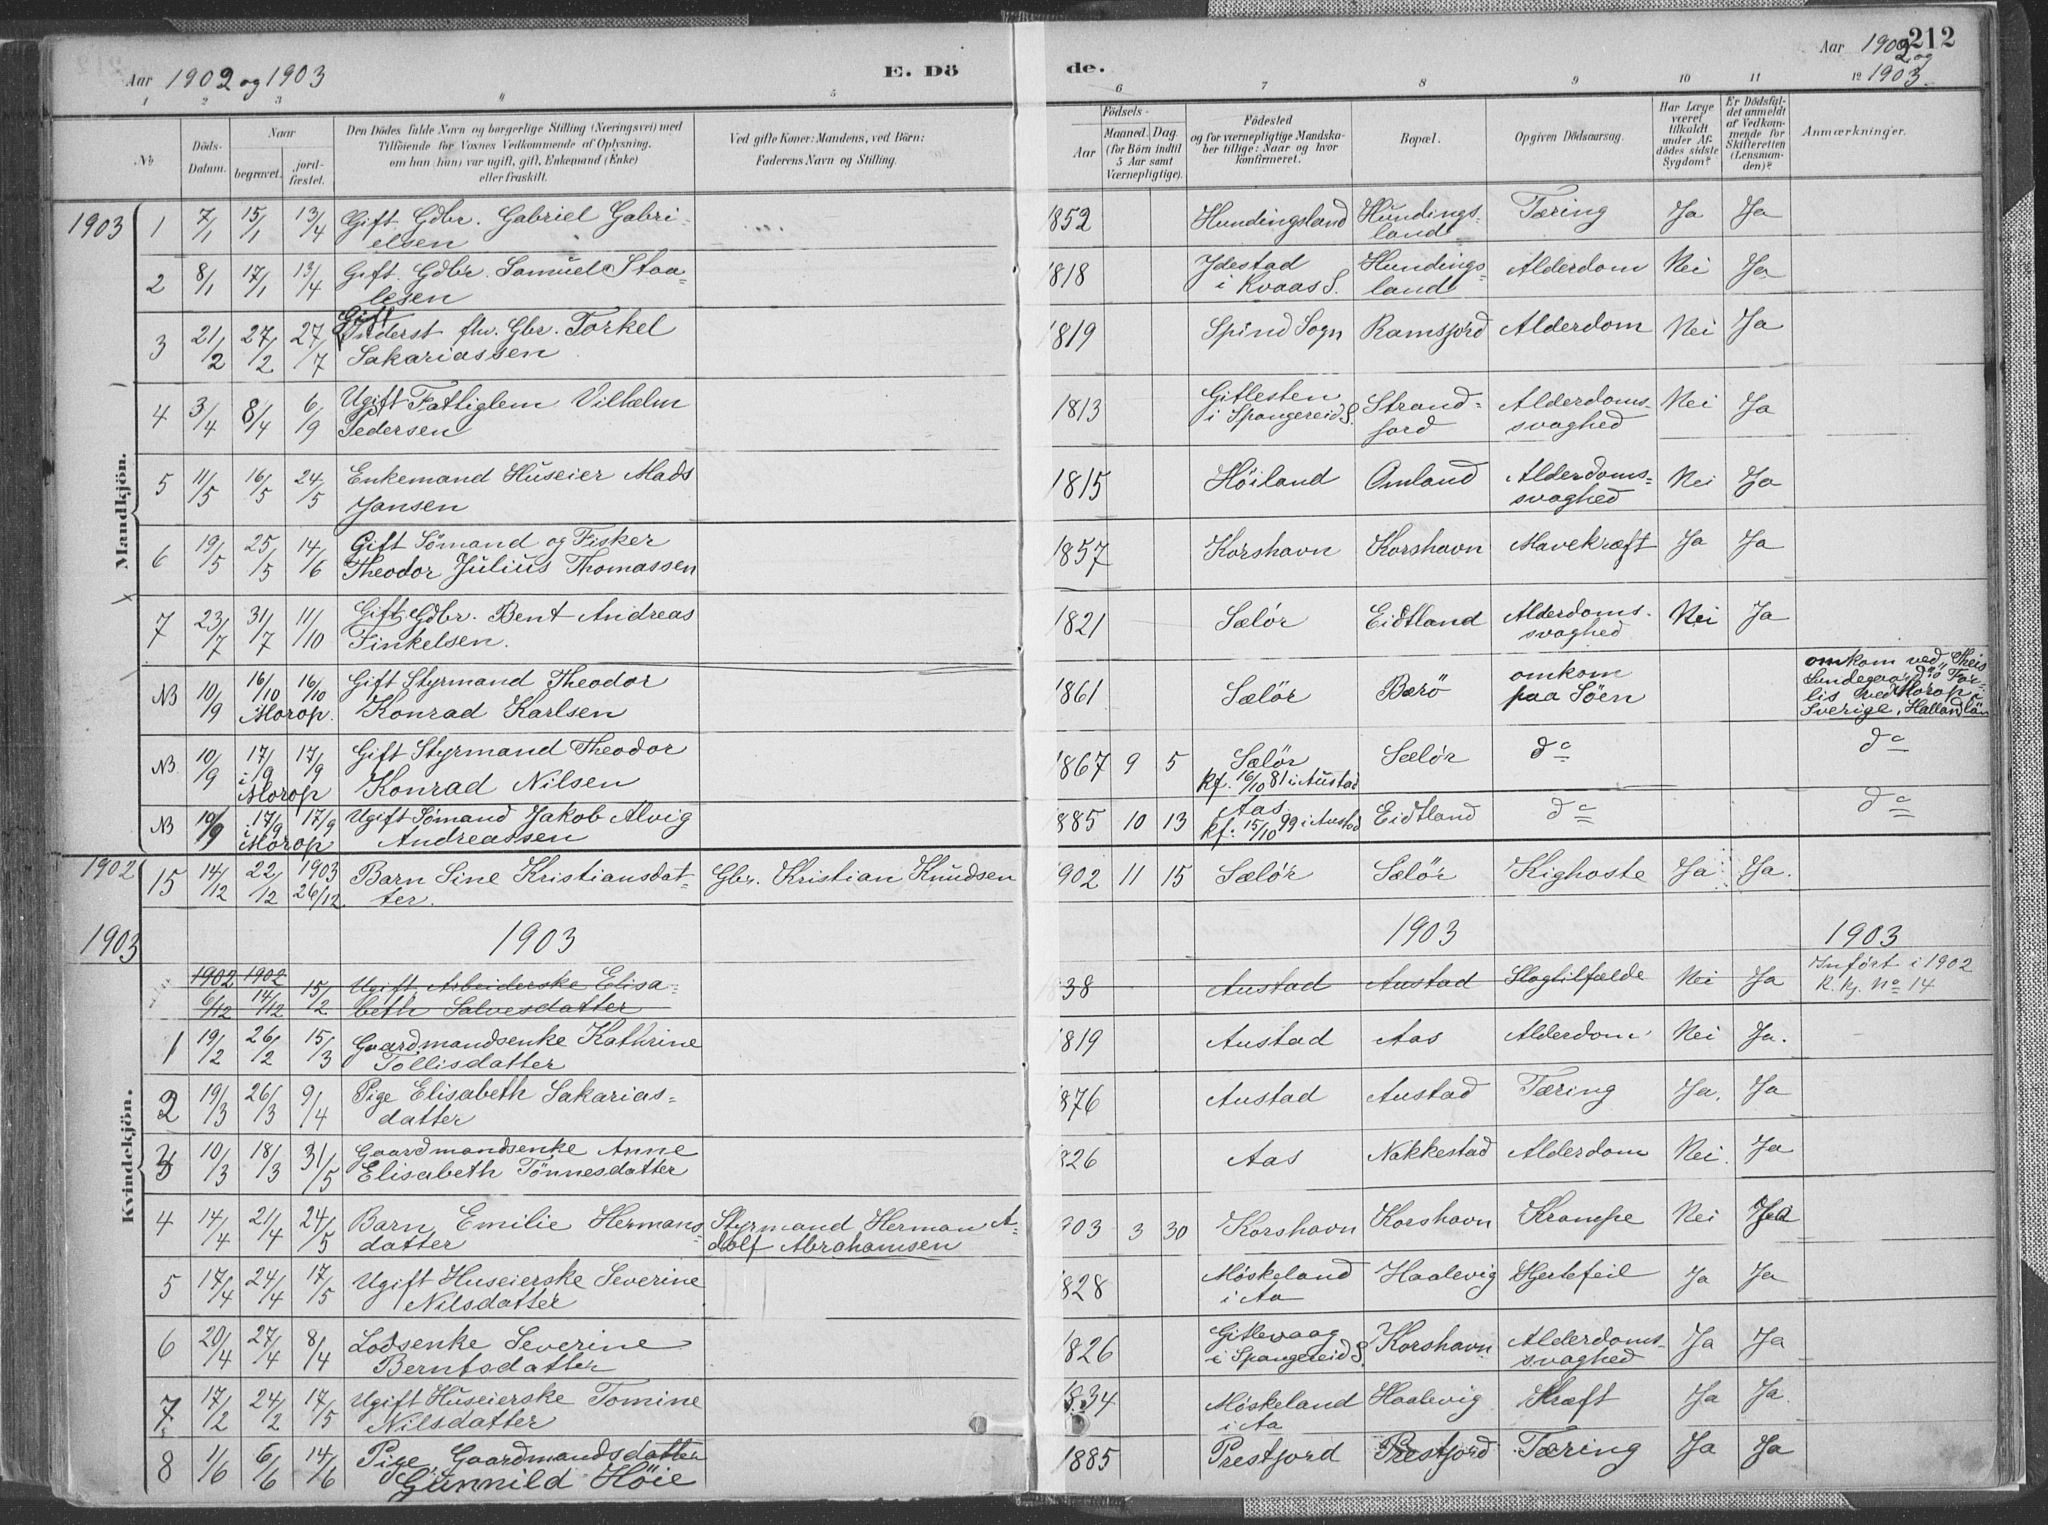 Aar 1902 og 1903
E. Dö
de.
Aar 1902 og 1903.
212
1 2 3 4 5 6 7 8 9 10 11 12
No
Döds-Datum.
Naar
begravet.
jord-fæstet.
Den Dödes fulde Navn og borgerlige Stilling (Næringsvei) med
Tilföiende for Voxnes Vedkommende af Oplysning,
om han (hun) var ugift, gift, Enkemand (Enke)
eller fraskilt.
Ved gifte Koner: Mandens, ved Börn:
Faderens Navn og Stilling.
Födsels-
Aar
Maaned. Dag.
(for Börn indtil
5 Aar samt
Værnepligtige).
Födested
og for værnepligtige Mandska-
ber tillige: Naar og hvor
konfirmeret.
Bopæl.
Opgiven Dödsaarsag.
Har Læge
været
tilkaldt
under Af-
dödes sidste
Sygdom?
Er Dödsfal-
det anmeldt
af Vedkom-
mende for
Skifteretten
(Lensman-
den)?
Anmærkninger.
Mandkjön.
1903 1 7/1 15/1 13/4 Gift Gdbr. Gabriel Gabri-
elsen 1852 Hundingsland Hundings-
land Tæring Ja Ja
2 8/1 17/1 13/4 Gift Gdbr. Samuel Staa-
lesen 1818 Ydestad
i Kvaas S. Hundings-
land Alderdom Nei Ja
3 21/2 27/2 27/7 Gift
Inderst fhv. Gbr. Torkel
Sakariassen 1819 Spind Sogn Ramsfjord Alderdom Nei Ja
4 3/4 8/4 6/9 Ugift Fattiglem Vilhelm
Pedersen 1813 Gitlesten
i Spangereid S. Strand-
fjord Alderdoms-
svaghed Nei Ja
5 11/5 16/5 24/5 Enkemand Huseier Mads
Jansen 1815 Höiland Omland Alderdoms-
svaghed Nei Ja
6 19/5 25/5 14/6 Gift Sömand og Fisker
Theodor Julius Thomassen 1857 Korshavn Korshavn Mavekræft Ja Ja
7 23/7 31/7 11/10 Gift Gdbr. Bent Andreas
Finkelsen. 1821 Sælör Eidtland Alderdoms-
svaghed Nei Ja
NB 10/9 16/10 16/10
Morop. Gift Styrmand Theodor
Konrad Karlsen 1861 Sælör Bærö omkom
paa Söen omkom ved "Theis
Lundegaard's" For-
lis ved Morop i
Sverige, Halland län
NB 10/9 17/9 17/9
i Morop Gift Styrmand Theodor
Konrad Nilsen 1867 9 5 Sælör
kf. 16/10 81 i Austad Sælör do do
NB 10/9 17/9 17/9
i Morop Ugift Sömand Jakob Alvig
Andreassen 1885 10 13 Aas
kf. 15/10 99 i Austad Eidtland do do
Kvindekjön.
1902 15 14/12 22/12 1903
26/12 Barn Sine Kristiansdat-
ter. Gbr. Kristian Knudsen 1902 11 15 Sælör Sælör Kighoste Ja Ja.
1903 1903 1903 1903
1902 1902
6/12 14/12 15/12 Ugift Arbeiderske Elisa-
beth Salvesdatter 38 Austad Austad Slagtilfælde Nei Ja Infört i 1902
K. kj. No 14
1 19/2 26/2 15/3 Gaardmandsenke Kathrine
Tollisdatter 1819 Austad Aas Alderdom Nei Ja.
2 19/3 26/3 9/4 Pige Elisabeth Sakarias-
datter 1876 Austad Austad Tæring Ja. Ja
3 10/3 18/3 31/5 Gaardmandsenke Anne
Elisabeth Tönnesdatter 1826 Aas Nakkestad Alderdom Nei. Ja
4 14/4 21/4 24/5 Barn Emilie Hermans-
datter Styrmand Herman A-
dolf Abrahamsen 1903 3 30 Korshavn Korshavn Krampe Nei Ja
5 17/4 24/4 17/5 Ugift Huseierske Severine
Nilsdatter 1828 Möskeland
i Aa Haalevig Hjertefeil Ja Ja
6 20/4 27/4 8/4 Lodsenke Severine
Berntsdatter 1826 Gitlevaag
i Spangereid S. Korshavn Alderdoms-
svaghed Ja Ja
7 17/2 24/2 17/5 Ugift Huseierske Tomine
Nilsdatter 1834 Möskeland
i Aa Haalevig Kræft Ja Ja
8 1/6 6/6 14/6 Pige, Gaardmandsdatter
Gunnild Höie 1885 Prestfjord Prestfjord Tæring Ja Ja